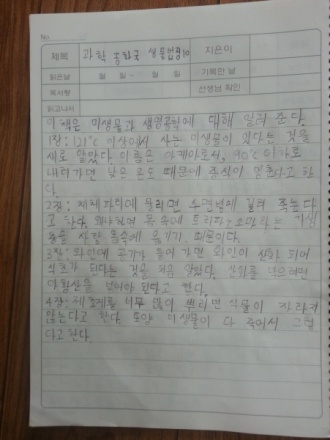 No.
제목 과학 공화국 생물법정10 지은이
읽은날 월 일 - 월 일 기록한 날
독서량 선생님 확인
읽고나서
이 책은 미생물과 생명공학에 대해 알려 준다.
1장: 121°C 이상에서 사는 미생물이 있다는 것을
새로 알았다. 이름은 아케아로서, 90°C 이하로
내려가면 낮은 온도 때문에 주식이 멈춘다고 한
다.
2장: 체체파리에 물리면 수면병에 걸려 죽는다
고 한다. 왜냐하면 목 속에 트리파노소마라는 기생
충을 사람 몸속에 옮기기 때문이다.
3장: 와인에 공기가 들어 가면 와인이 산화 되어
식초가 된다는 것을 처음 알았다. 산화를 막으려면
이황산을 넣어야 된다고 한다.
4장: 제초제를 너무 많이 뿌리면 식물이 자라지
않는다고 한다. 토양 미생물이 다 죽어서 그렇
다고 한다.